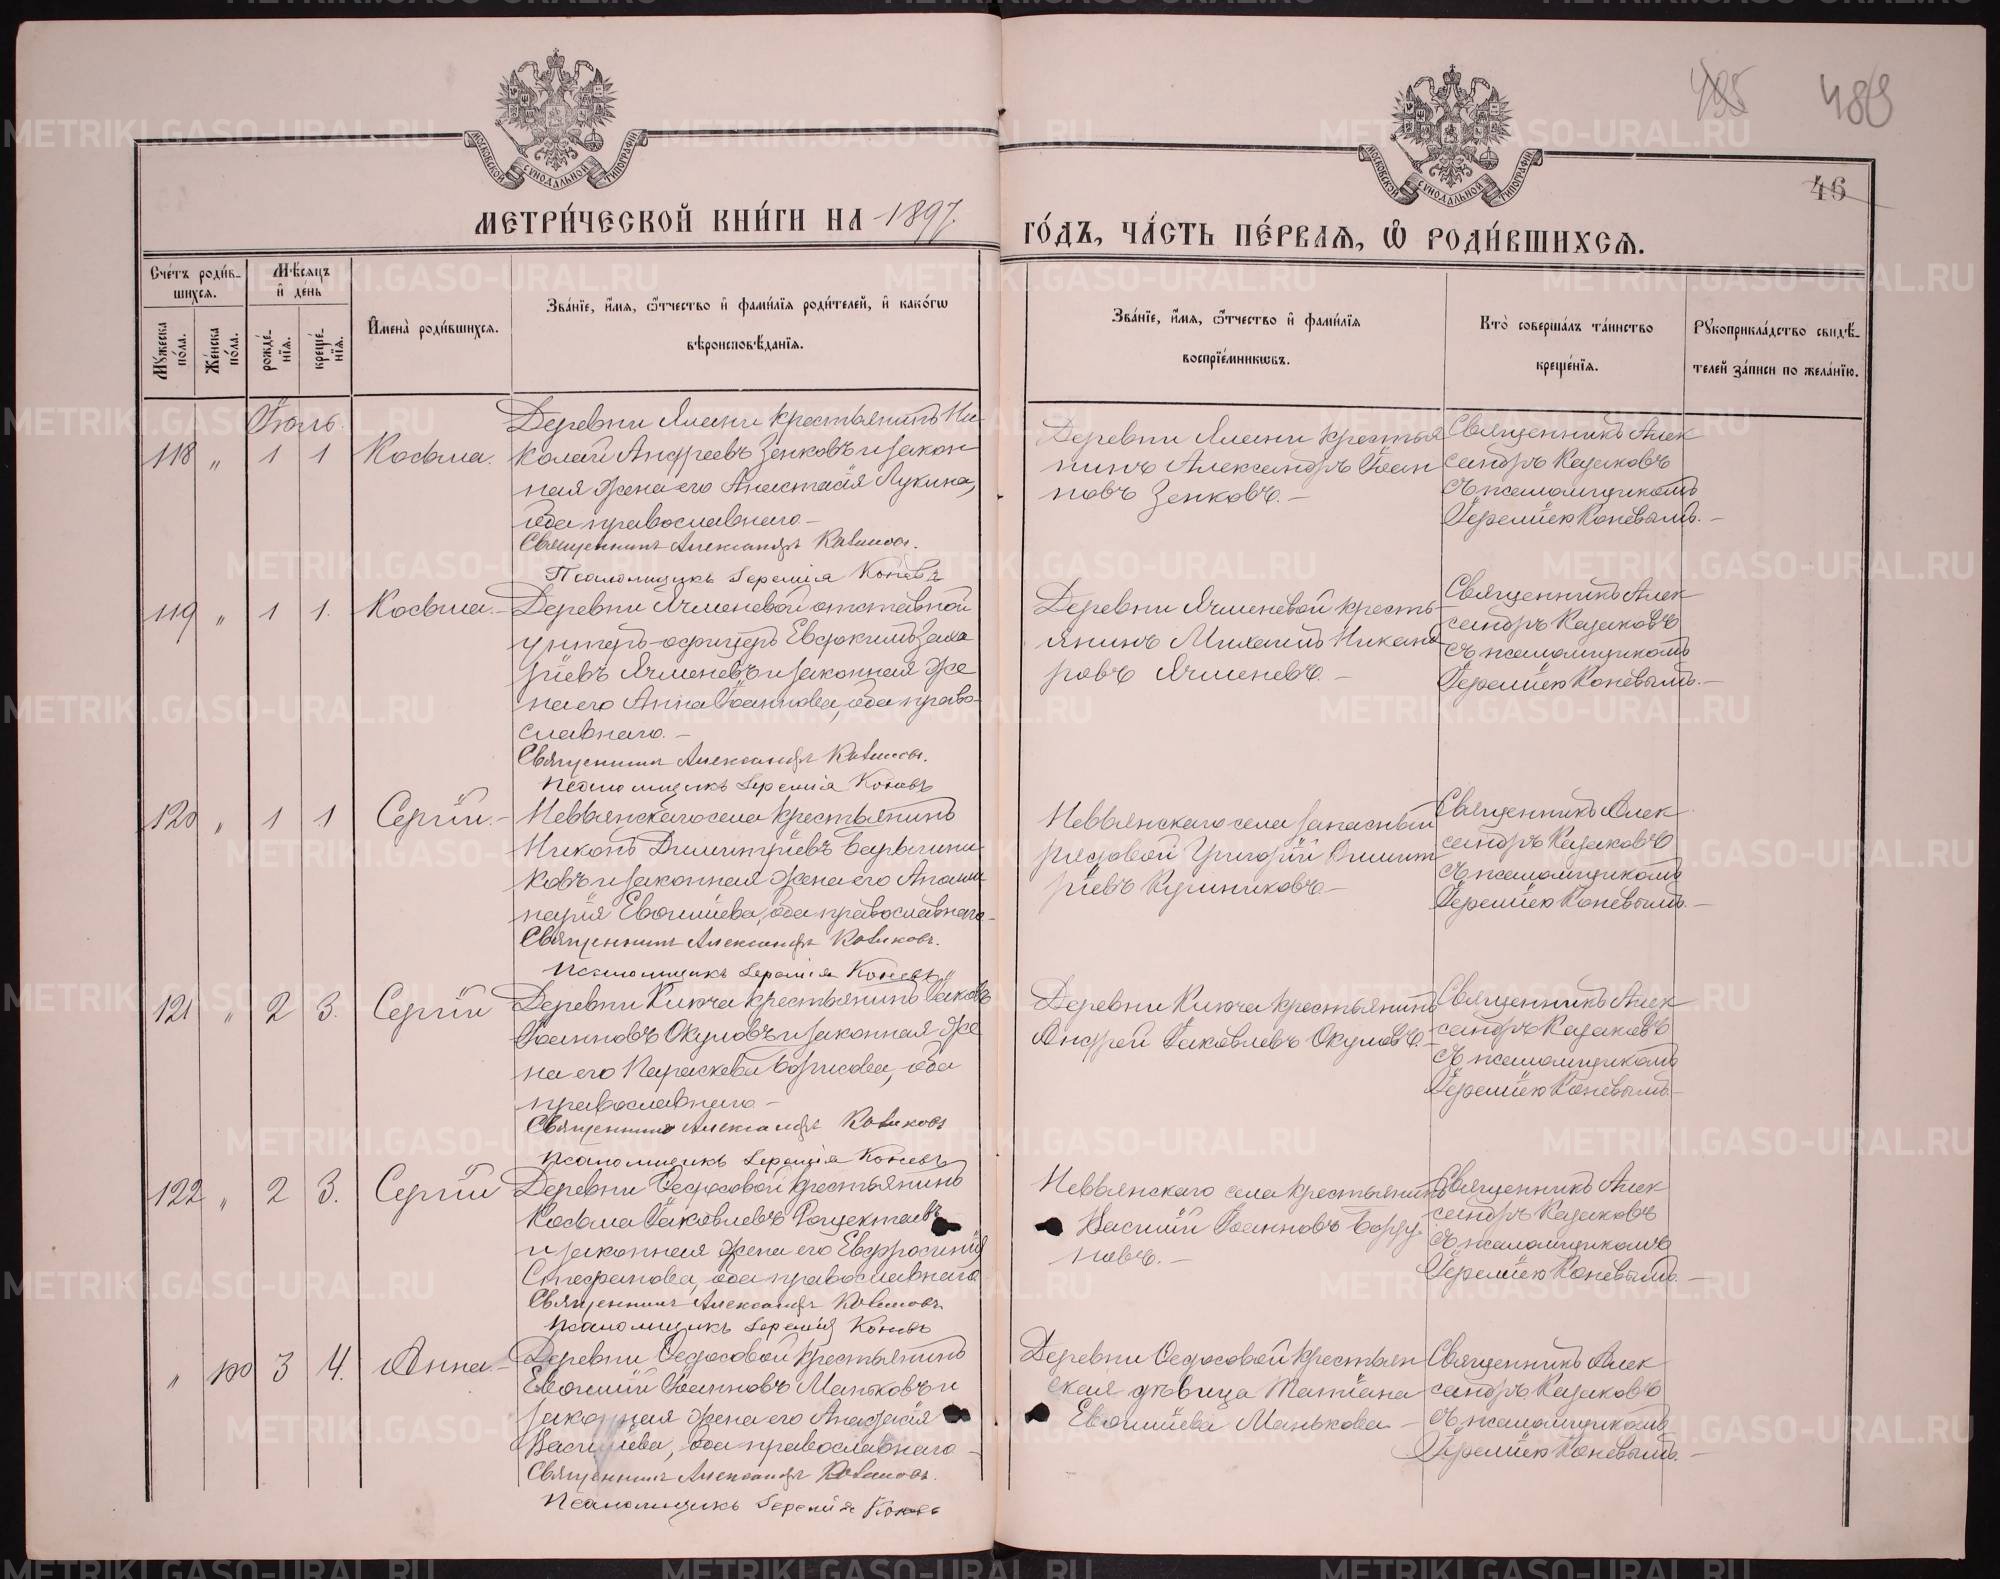 495
489
46
МОСКОВСКОЙ СѴНОДАЛЬНОЙ ТИПОГРАФІИ
МОСКОВСКОЙ СѴНОДАЛЬНОЙ ТИПОГРАФІИ
МЕТРИ́ЧЕСКОЙ КНИ́ГИ НА 1897
ГО́ДЪ, ЧА́СТЬ ПЕ́РВАѦ, Ѡ РОДИ́ВШИХСѦ.
Сче́тъ роди́в-
шихсѧ.
Мѣ́сѧцъ
и де́нь
Мꙋжеска по́ла.
Же́нска по́ла.
рожде́нїѧ.
креще́нїѧ.
Имена̀ роди́вшихсѧ.
Зва́нїе, и́мѧ, ѻ҆́тчество и фами́лїѧ роди́телей, и како́гѡ
вѣроисповѣ́данїѧ.
Зва́нїе, и́мѧ, ѻ҆́тчество и фами́лїѧ
воспрїе́мникѡвъ.
Кто̀ соверша́лъ та́инство
креще́нїѧ.
Рꙋкоприкла́дство свидѣ́-
телей за́писи по жела́нїю.
Іюль.
118 " 1 1 Косьма.
Деревни Ялани крестьянинъ Ни-
колай Андреевъ Зенковъ и закон
ная жена его Анастасія Лукина,
оба православнаго –
Священникъ Александръ Казаковъ.
Псаломщикъ Іеремія Коневъ
Деревни Ялани крестья
нинъ Александръ Іоан
новъ Зенковъ. –
Священникъ Алек
сандръ Казаковъ
съ псаломщикомъ
Іереміею Коневымъ. –
119 " 1 1. Косьма. –
Деревни Ячменевой отставной
унтеръ-офицеръ Евдокимъ Заха
ріевъ Ячменевъ и законная же
на его Анна Іоаннова, оба право-
славнаго. –
Священникъ Александръ Казаковъ.
Псаломщикъ Іеремія Коневъ
Деревни Ячменевой кресть-
янинъ Михаилъ Никано
ровъ Ячменевъ. –
Священникъ Алек
сандръ Казаковъ
съ псаломщикомъ
Іереміею Коневымъ. –
120 " 1 1 Сергій. –
Невьянскаго села крестьянинъ
Никонъ Димитріевъ
ковъ и законная жена его Аполли
нарія Евѳиміева, оба православнаго –
Священникъ Александръ Казаковъ.
Псаломщикъ Іеремія Коневъ
Невьянскаго села запасный
рядовой Григорій Димит
ріевъ –
Священникъ Алек
сандръ Казаковъ
съ псаломщикомъ
Іереміею Коневымъ. –
121 " 2 3. Сергій
Деревни Ключа крестьянинъ Іаковъ
Іоанновъ Окуловъ и законная же
на его Параскева Борисова, оба
православнаго –
Священникъ Александръ Казаковъ
Псаломщикъ Іеремія Коневъ
Деревни Ключа крестьянинъ
Андрей Іаковлевъ Окуловъ. –
Священникъ Алек
сандръ Казаковъ
съ псаломщикомъ
Іереміею Коневымъ –
122 " 2 3. Сергій
Деревни Ѳедосовой крестьянинъ
Косьма Іаковлевъ
и законная жена его Евфросинія
Стефанова, оба православнаго
Священникъ Александръ Казаковъ.
Псаломщикъ Іеремія Коневъ
Невьянскаго села крестьянинъ
Василій Іоанновъ
новъ. –
Священникъ Алек
сандръ Казаковъ
съ псаломщикомъ
Іереміею Коневымъ. –
" 3 4. Анна. –
Деревни Ѳедосовой крестьянинъ
Евѳимій Іоанновъ Маньковъ и
законная жена его Анастасія
Василіева, оба православнаго –
Священникъ Александръ Казаковъ.
Псаломщикъ Іеремія Коневъ
Деревни Ѳедосовой крестьян
ская дѣвица Татіана
Евѳиміева Манькова –
Священникъ Алек
сандръ Казаковъ
съ псаломщикомъ
Іереміею Коневымъ. –
METRIKI.GASO-URAL.RU